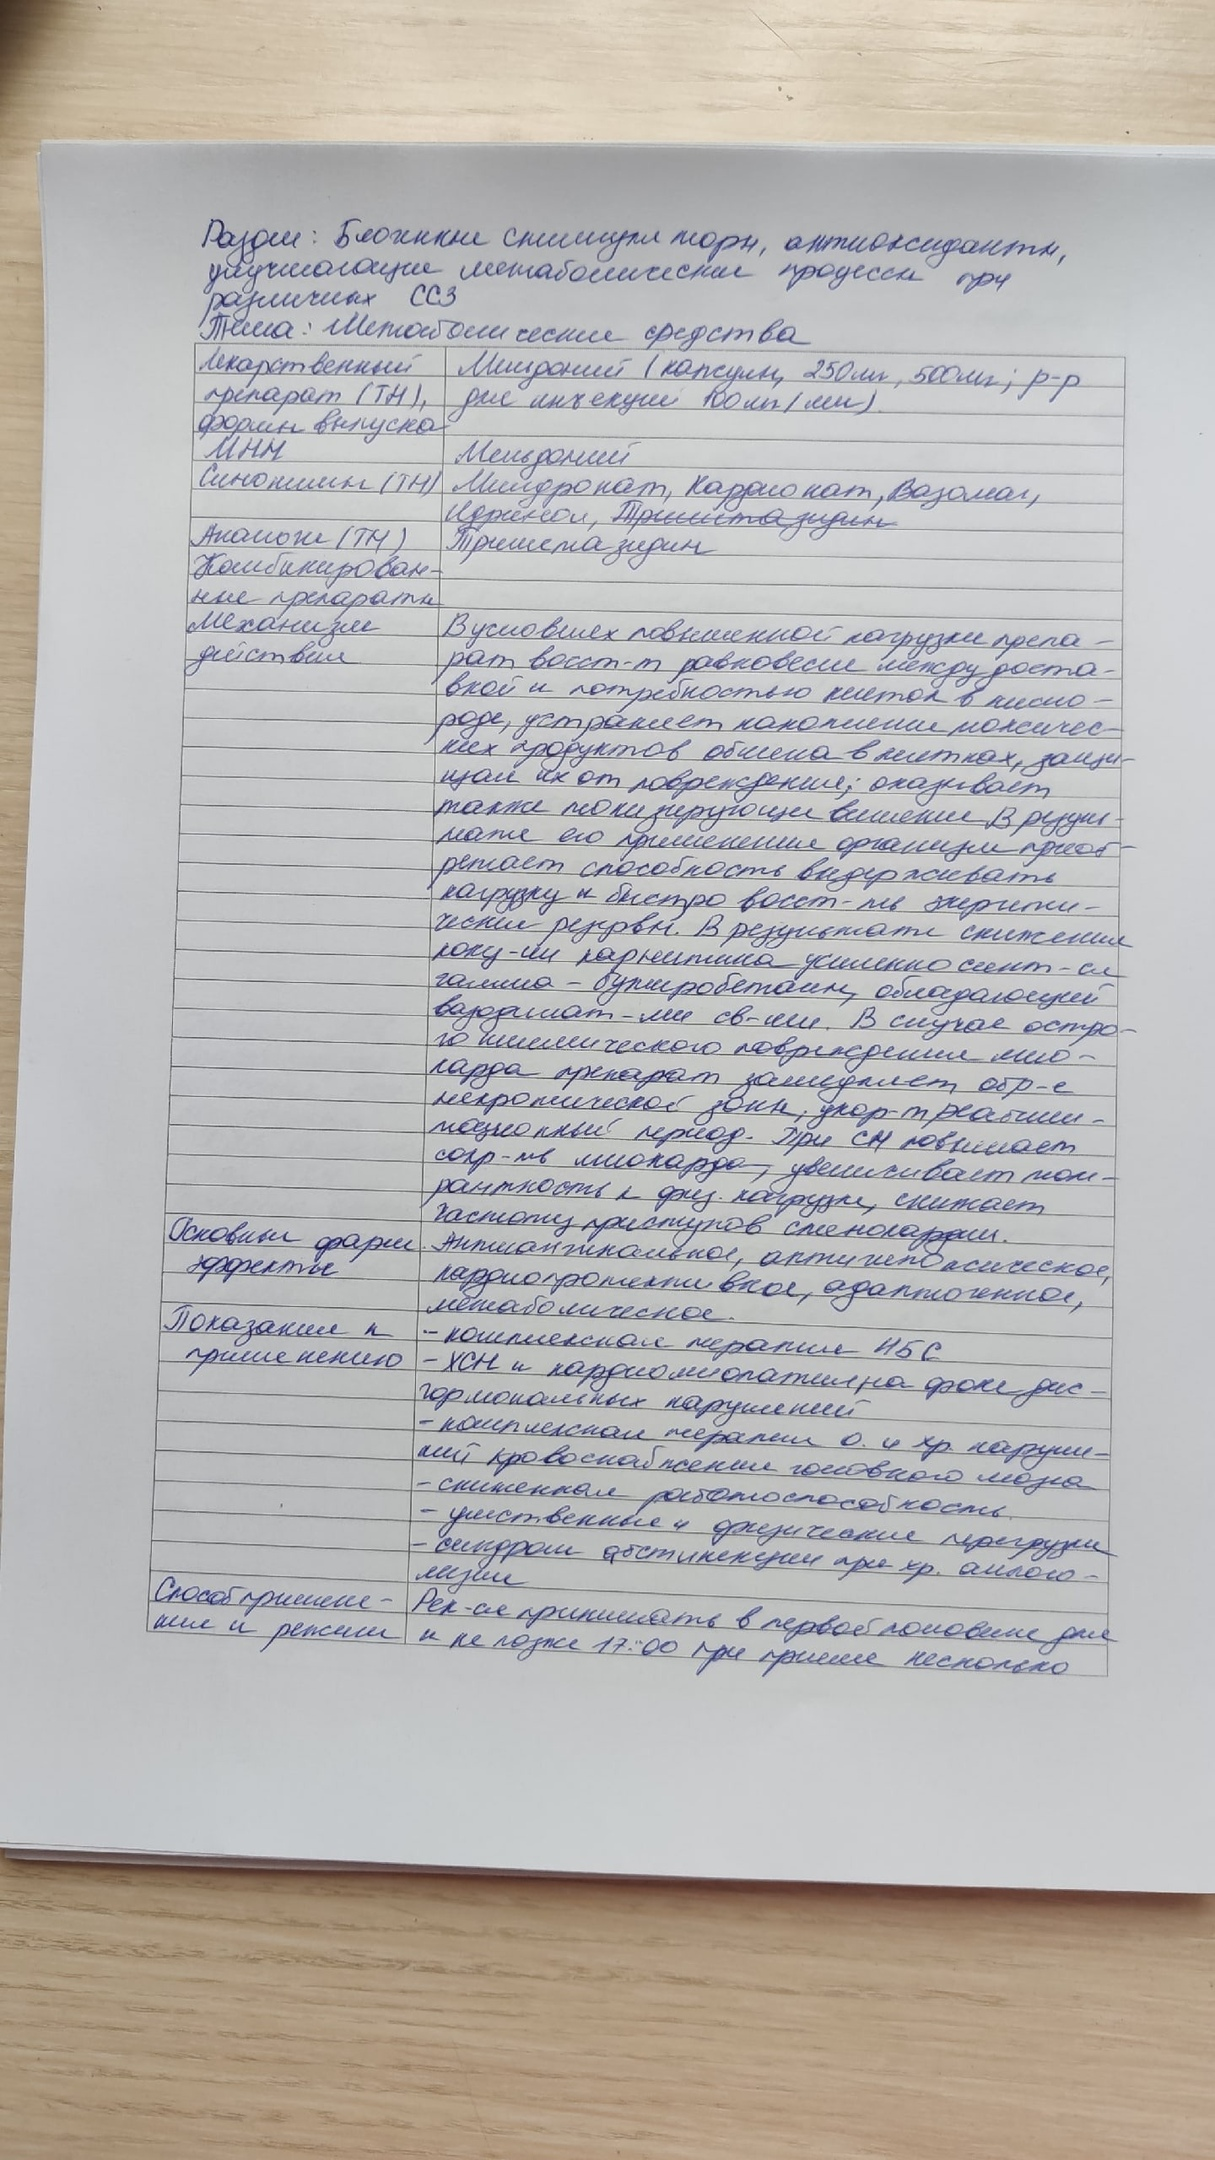 Раздел: Биогенные стимуляторы, антиоксиданты,
улучшающие метаболические процессы при
различных ССЗ
Тема: Метаболические средства
Лекарственный
препарат (ТН),
формы выпуска
Мельдоний (капсулы, 250мг, 500мг; р-р
для инъекций 100мг/мл).
МНН
Мельдоний
Синонимы (ТН)
Милдронат, Кардионат, Вазомаг,
Идринол, Триметазидин
Аналоги (ТН)
Триметазидин
Комбинирован-
ные препараты
Механизм
действия
В условиях повышенной нагрузки препа-
рат восст-т равновесие между доста-
вкой и потребностью клеток в кисло-
роде, устраняет накопление токсичес-
ких продуктов обмена в клетках, защи-
щая их от повреждения; оказывает
также тонизирующее влияние. В резуль-
тате его применения организм приоб-
ретает способность выдерживать
нагрузку и быстро восст-ть энергети-
ческие резервы. В результате снижения
конц-ии карнитина усиленно синт-ся
гамма-бутиробетаин, обладающий
вазодилат-ми св-ми. В случае остро-
го ишемического повреждения мио-
карда препарат замедляет обр-е
некротической зоны, укор-т реабили-
тационный период. При СН повышает
сокр-ть миокарда, увеличивает толе-
рантность к физ. нагрузке, снижает
частоту приступов стенокардии.
Основные фарм
эффекты
Антиангинальное, антигипоксическое,
кардиопротективное, адаптогенное,
метаболическое.
Показания к
применению
- комплексная терапия ИБС
- ХСН и кардиомиопатия, на фоне дис-
гормональных нарушений
- комплексная терапия о. и хр. наруше-
ний кровоснабжения головного мозга
- сниженная работоспособность
- умственные и физические перегрузки
- синдром абстиненции при хр. алкого-
лизме
Способ примене-
ния и режим
Рек-ся принимать в первой половине дня
и не позже 17:00 при приеме несколько